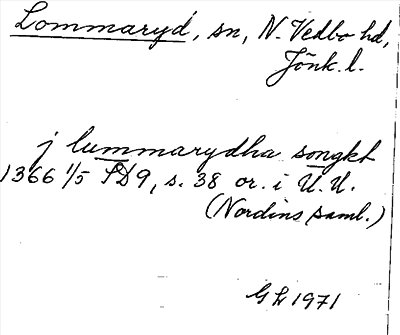 Lommaryd, sn, N. Vedbo hd,
Jönk. l.
j lummarydha songkt
1366 1/5 SD9, s. 38 or. i U. U.
(Nordins saml.)
GL 1971